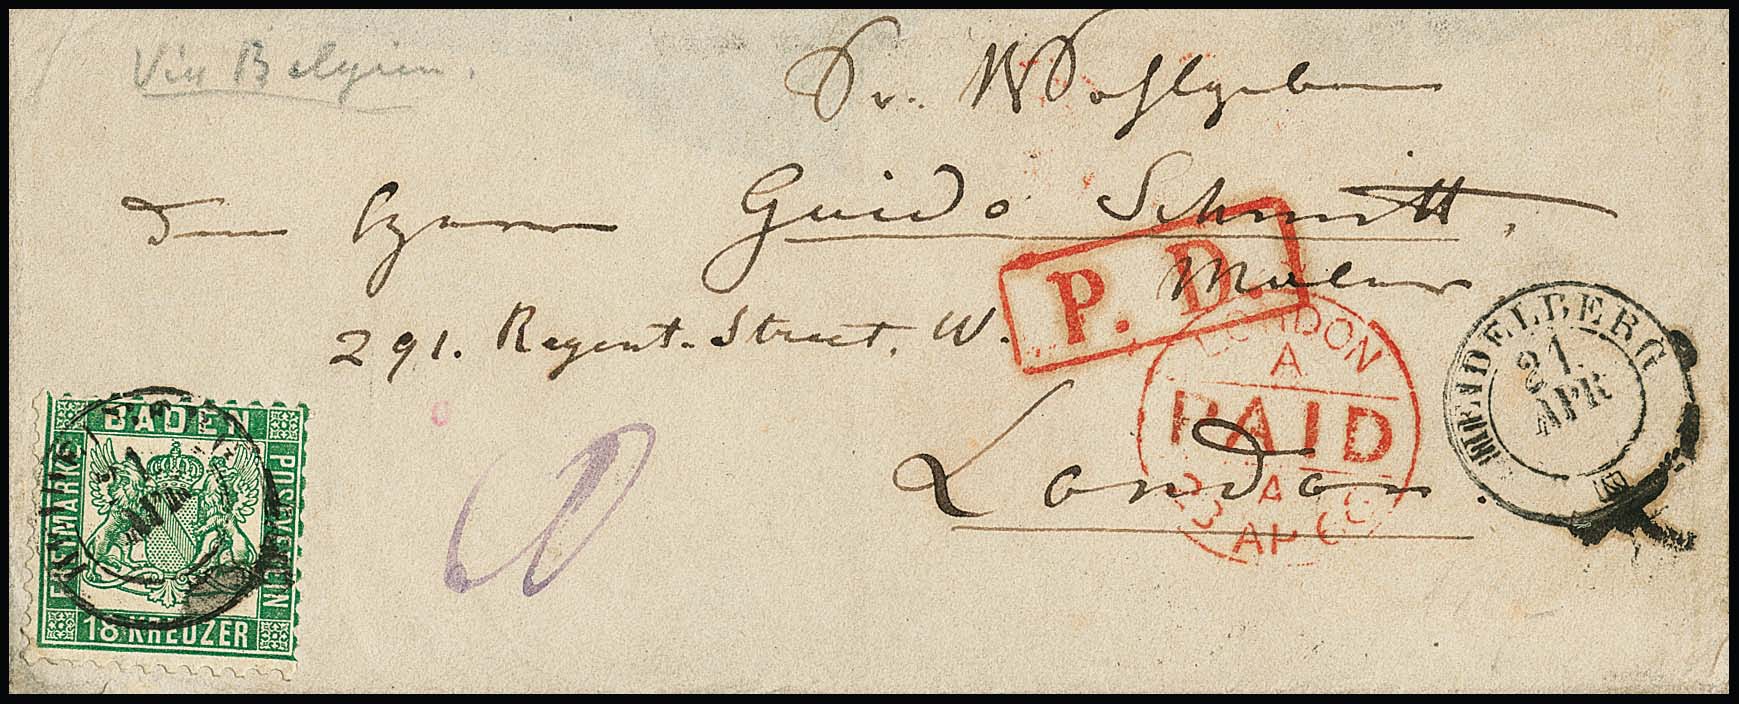 Via Belgien.
Sr. Wohlgeboren
dem Herrn Guido Schmitt,
Maler
291. Regent-Street. W.
London.
P. D.
LONDON
A
PAID
23 AP 6
HEIDELBERG
21.
APR
BADEN
FREIMARKE
POSTVEREIN
18 KREUZER
21.
APR